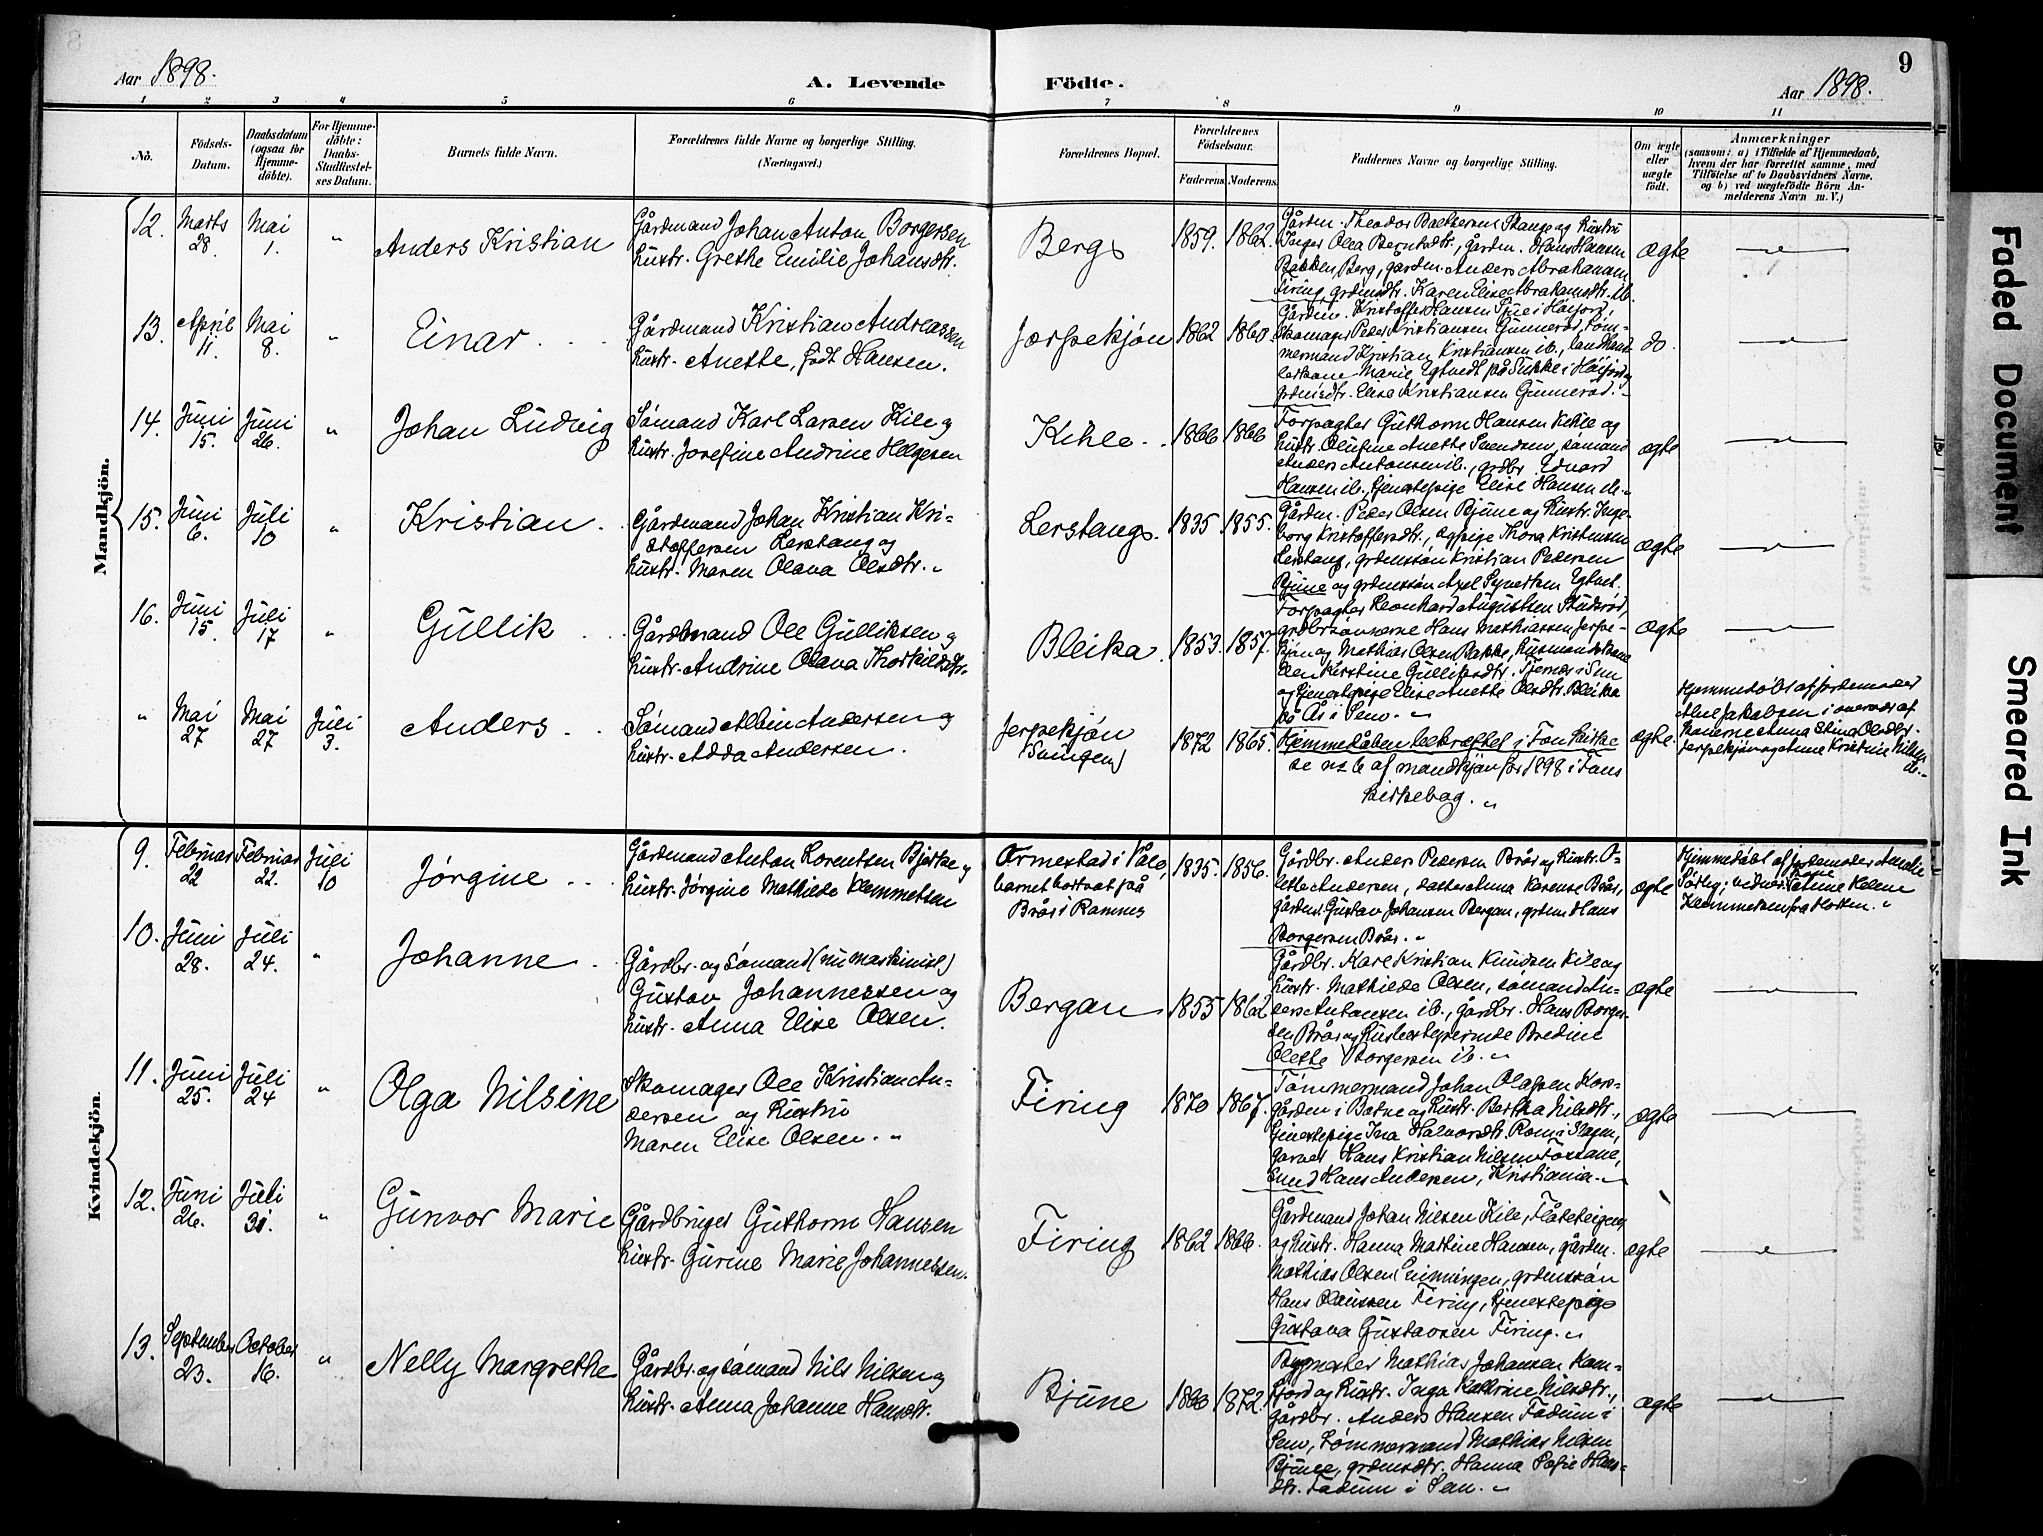 Aar 1898.
A. Levende Födte.
Aar 1898.
9
1 2 3 4 5 6 7 8 9 10 11
No.
Födsels-
Datum.
Daabsdatum
(ogsaa for
Hjemme-
döbte).
For Hjemme-
döbte:
Daabs-
Stadfæstel-
ses Datum.
Barnets fulde Navn.
Forældrenes fulde Navne og borgerlige Stilling.
(Næringsvei.)
Forældrenes Bopæl.
Forældrenes
Födselsaar.
Faderens Moderens
Faddernes Navne og borgerlige Stilling.
Om ægte
eller
uægte
födt.
Anmærkninger
(saasom: a) i Tilfælde af Hjemmedaab,
hvem der har forrettet samme, med
Tilföielse af to Daabsvidners Navne,
og b) ved uægtefödte Börn An-
melderens Navn m. V.)
Mandkjön.
12. Marts 28. Mai 1. " Anders Kristian
Gårdmand Johan Anton Borgersen
hustr. Grethe Emilie Johansdtr.
Berg 1859. 1862.
Gårdm. Theodor Baltzersen Stange og hustru
Inger Olea Berntsdtr., gårdm. Hans Hansen
Bakken Berg, gårdm. Anders Abrahamsen
Firing, grdmsdtr. Karen Elise Abrahamsdtr. ib.
ægte
13. April 11. Mai 8. " Einar
Gårdmand Kristian Andreassen
hustr. Anette, født Hansen.
Jerpekjøn 1862 1860.
Gårdm. Kristoffer Hansen i Høijord,
Skomager Peder Kristiansen Gunnerød, Tøm-
mermand Kristian Kristiansen ib., landhand-
lerkone Marie Egtvedt på Sukke i Høijord og
grdmsdtr. Elise Kristiansen Gunnerød.
do.
14. Juni 15. Juni 26. " Johan Ludvig
Sømand Karl Larsen Kile og
hustr. Josefine Andrine Helgesen
Kihle 1866 1866
Forpagter Guthorm Hansen Kihle og
hustr. Olufine Anette Svendsen, sømand
Anders Antonsen ib., grdbr. Edvard
Hansen ib., tjenestepige Elise Hansen ib.
ægte
15. Juni 6. Juli 10 " Kristian
Gårdmand Johan Kristian Kri-
stoffersen Lerstang og
hustr. Maren Olava Olsdtr.
Lerstang. 1835 1855.
Gårdm. Peder Olsen Bjune og hustr. Inge-
borg Kristoffersdtr., pige Thora Kristensen
Lerstang, grdmssøn Kristian Pedersen
Bjune og grdmssøn Axel Syvertsen Egtvet.
ægte
16. Juni 15. Juli 17 " Gullik
Gårdmand Ole Gulliksen og
hustr. Andrine Olava Thorkildsdtr.
Bleika 1853. 1857.
Forpagter Leonhard Augustsen Studsrød,
grdbrsønnerne Hans Mathiassen Jerpe-
kjøn og Mathias Olsen Bakke, husmandskone
Ellen Kirstine Gulliksdtr. i Sem
og tjenestepige Elise Anette Olsdtr. Bleika
på Ås i Sem.
ægte
" Mai 27 Mai 27 Juli 3. Anders
Sømand Albin Andersen og
hustr. Adda Andersen.
Jerpekjøn
1872 1865.
Hjemmedåben bekræftet i Fon kirke
se no 6 af mandkjøn for 1898 i Fons
kirkebog.
ægte.
Hjemmedøbt af jordemoder
Jakobsen i overvær af
konerne Anna Stina Olsdtr.
Jerpekjøn og Anne Kristine Nilsen
ib.
Kvindekjön.
9. Februar 22 Februar 22. Juli 10 Jørgine
Gårdmand Anton Lorentsen Bjerke og
hustr. Jørgine Mathilde Klemmetsen
Ormestad i Våle,
barnet bortsat på
Brår i Ramnes
1835. 1856.
Gårdbr. Anders Pedersen Brår og hustr. O-
lette Andersen, datter Anna Karense Brår,
gårdm. Gustav Johansen Bergan, grdm. Hans
Borgersen Brår.
ægte
Hjemmedøbt af jordemoder Amalie
vidner: Kone Anne Helene
Klemmetsen fra Horten.
10. Juni 28. Juli 24. " Johanne
Gårdbr. og Sømand (nu maskinist)
Gustav Johannessen og
hustr. Anna Elise Olsen.
Bergan 1855 1862
Gårdbr. Karl Kristian Knudsen Kile og
hustr. Mathilde Olsen, sømand An-
ders Antonsen ib., gårdbr. Hans Borger-
sen Brår og husbestyrerinde Bredine
Olette Borgersen ib.
ægte
11. Juni 25. Juli 24 " Olga Nilsine
Skomager Ole Kristian An-
dersen og hustru
Maren Elise Olsen.
Firing 1870 1867.
Tømmermand Johan Olafsen Kors-
gården i Botne og hustr. Bertha Nilsdtr.,
tjenestepige Ina Halvorsdtr. Rom i Slagen,
garver Hans Kristian Nilsen
Hans Andersen, Kristiania.
ægte
12. Juni 26. Juli 31. " Gunvor Marie
Gårdbruger Guthorm Hansen
hustr. Gurine Marie Johannessen.
Firing 1862 1866.
Gårdmand Johan Nilsen Kile, Flåteteigen,
og hustr. Hanna Mathine Hansen, gårdm.
Mathias Olsen, grdmssøn
Hans Olaussen Firing, tjenestepige
Gustava Gustavsen Firing.
ægte
13. September 23. October 16. " Nelly Margrethe
Gårdbr. og sømand Nils Nilsen og
hustr. Anna Johanne Hansdtr.
Bjune 1866 1872.
Bygmester Mathias Johansen Kam-
fjord og hustr. Inga Kathrine Nilsdtr.,
Gårdbr. Anders Hansen Fadum i
Sem, Tømmermand Mathias Nilsen
Bjune, grdmsdtr. Hanna Sofie Hans-
dtr. Fadum i Sem.
ægte
Faded Document
Smeared Ink